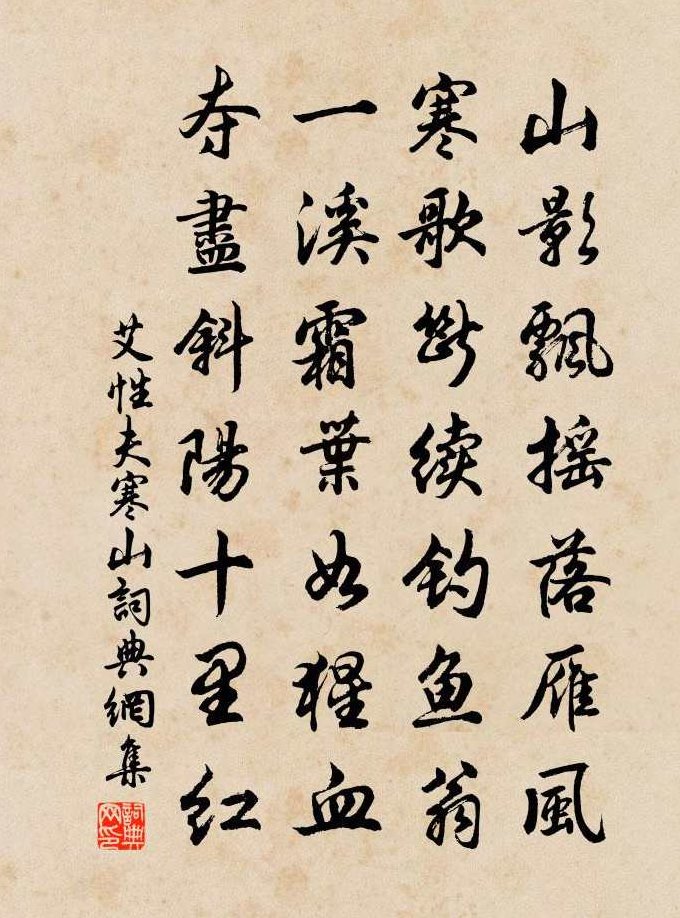 山影飄摇落雁风
寒歌断续钓鱼翁
一溪霜葉如猩血
夺盡斜陽十里红
艾性夫寒山詞典網集
詞典网印